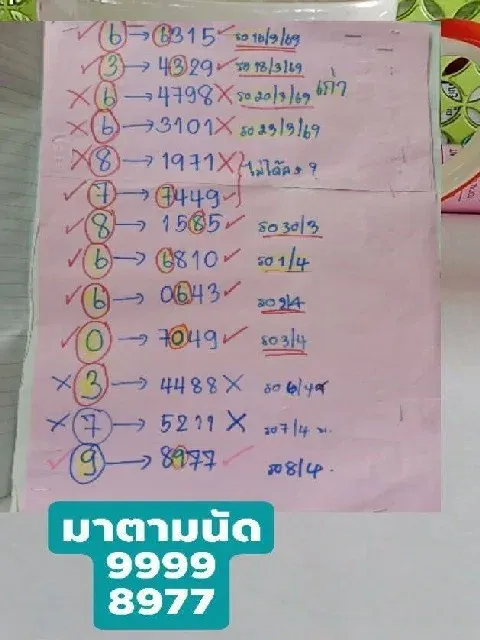 ✓ 6 → 6315 ✓ รอ 16/3/69
✓ 3 → 4329 ✓ รอ 18/3/69
× 6 → 4798 × รอ 20/3/69 เก่า
× 6 → 3101 × รอ 23/3/69
× 8 → 1971 ×
✓ 7 → 7449 ✓
✓ 8 → 1585 ✓ รอ 30/3
✓ 6 → 6810 ✓ รอ 1/4
✓ 6 → 0643 ✓ รอ 2/4
✓ 0 → 7049 ✓ รอ 3/4
× 3 → 4488 × รอ 6/4
× 7 → 5211 × รอ 7/4
✓ 9 → 8977 ✓ รอ 8/4.
มาตามนัด
9999
8977